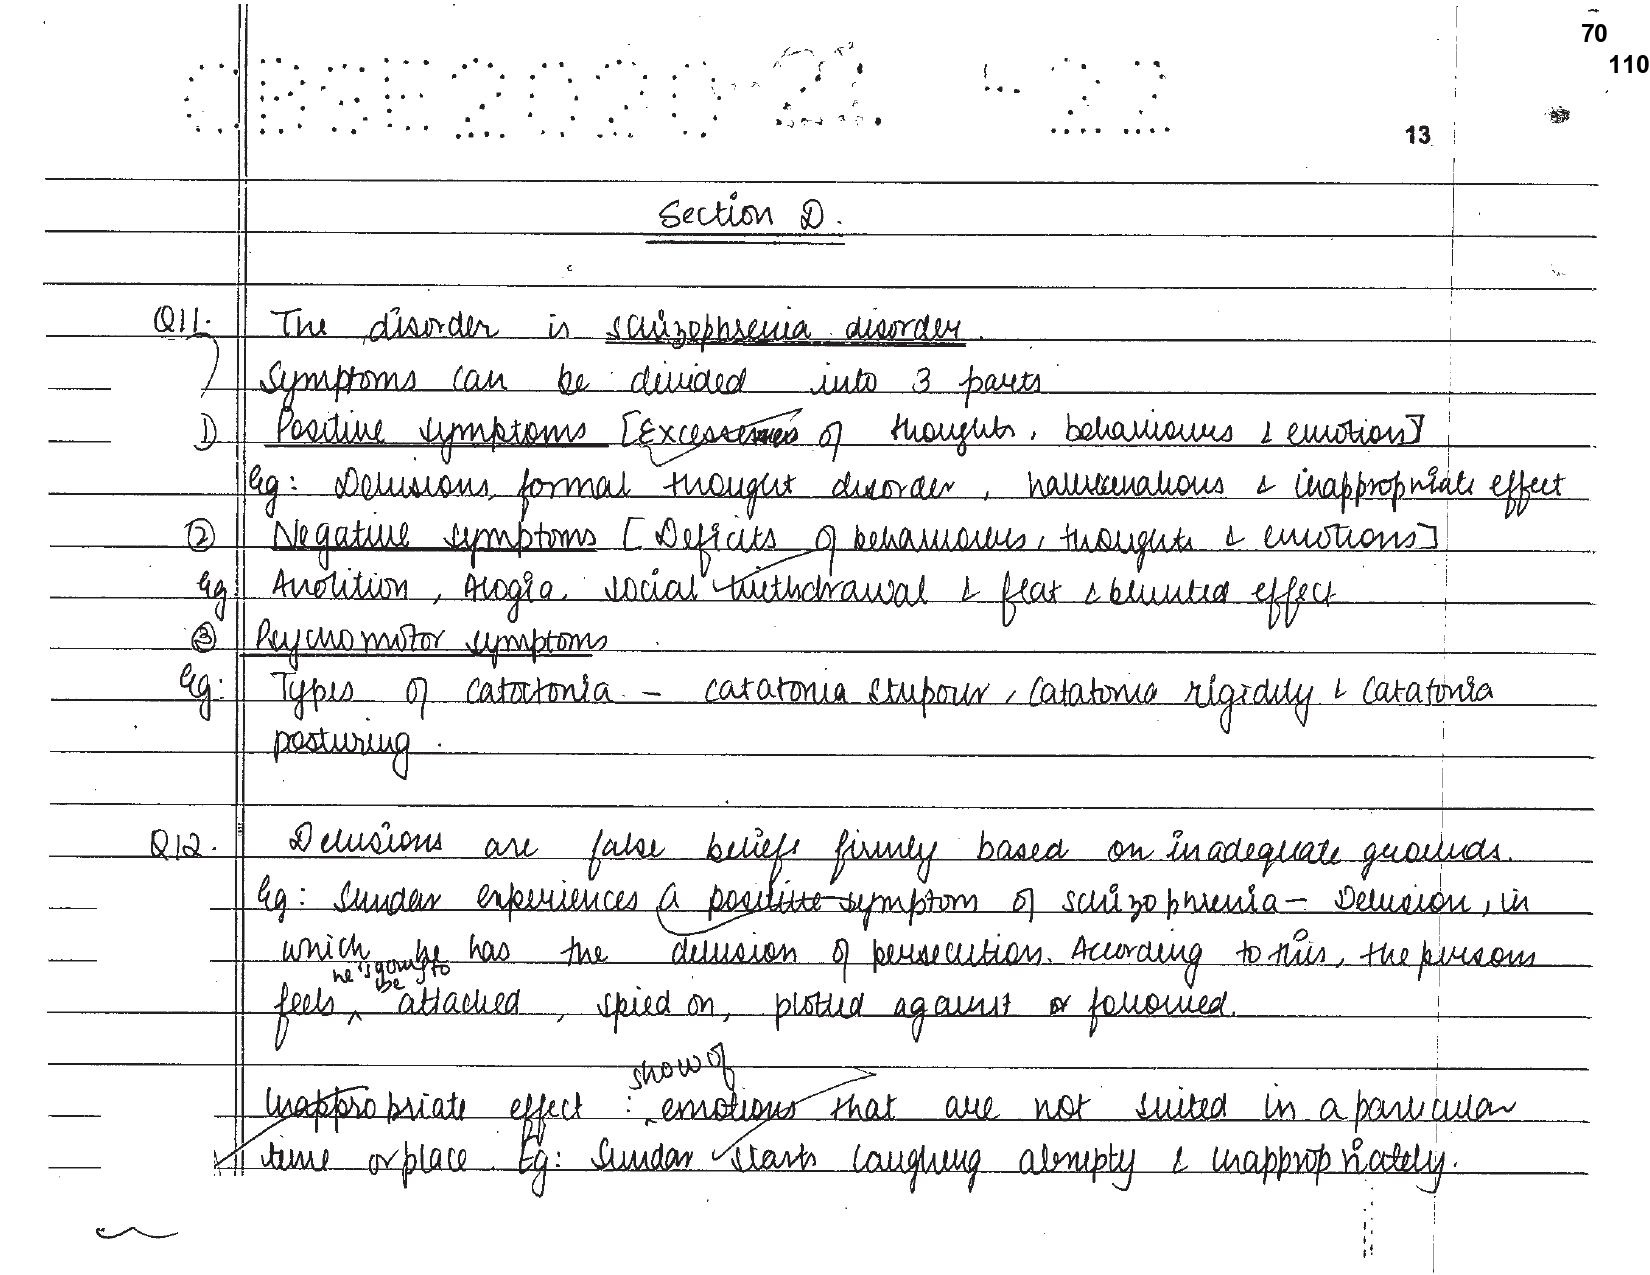 70
110
CBSE2020-21 22
13
Section D.
Q11. The disorder is schizophrenia disorder.
Symptoms can be divided into 3 parts
1) Positive symptoms [Excesses of thoughts, behaviours & emotion]
Eg: Delusions, formal thought disorder, hallucinations & inappropriate effect
② Negative symptoms [Deficits of behaviours, thoughts & emotions]
Eg Avolition, Alogia, social withdrawal & flat & blunted effect
③ Psychomotor symptoms.
Eg: Types of catactonia - catatonia stupour, Catatonia rigidily & Catatonia
posturing.
Q12. Delusions are false beliefs firmly based on inadequate grounds.
Eg: Sundar experiences a positive symptom of schizophrenia - Delusion, in
which he has the delusion of persecution. According to this, the persons
feels he is going to be attacked, spied on, plotted against or followed.
Inappropriate effect : show of emotions that are not suited in a particular
time or place. Eg: Sundar starts laughing abrupty & inappropriately.